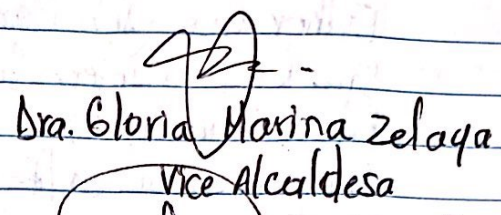 Dra. Gloria Marina Zelaya
Vice Alcaldesa